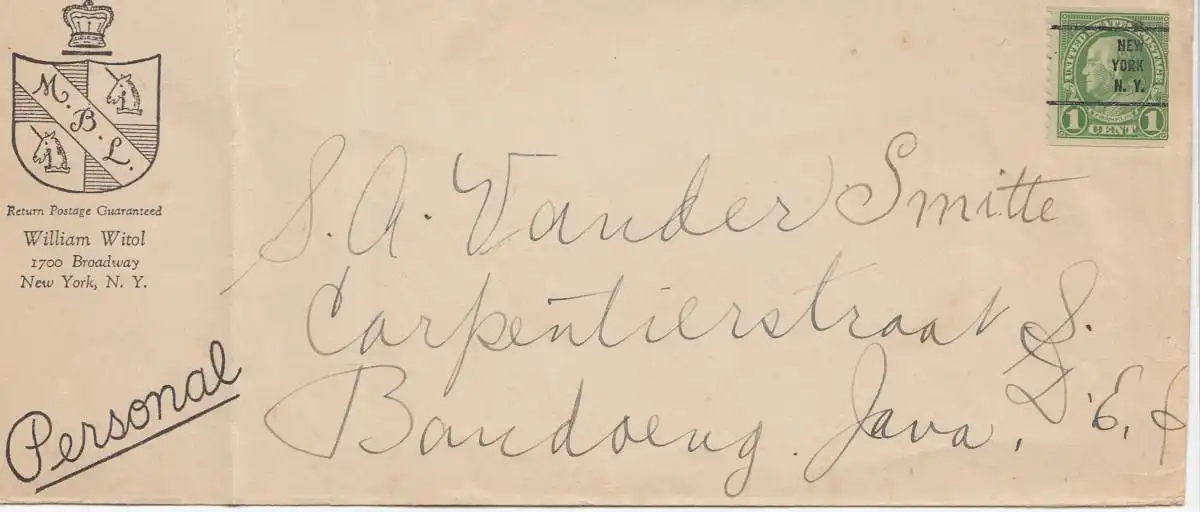 M. B. L.
Return Postage Guaranteed
William Witol
1700 Broadway
New York, N. Y.
Personal
UNITED STATES POSTAGE
NEW
YORK
N. Y.
FRANKLIN
1 CENT 1
S. A. Vander Smitte
Carpentierstraat 8.
Bandoeng. Java, D. E. I